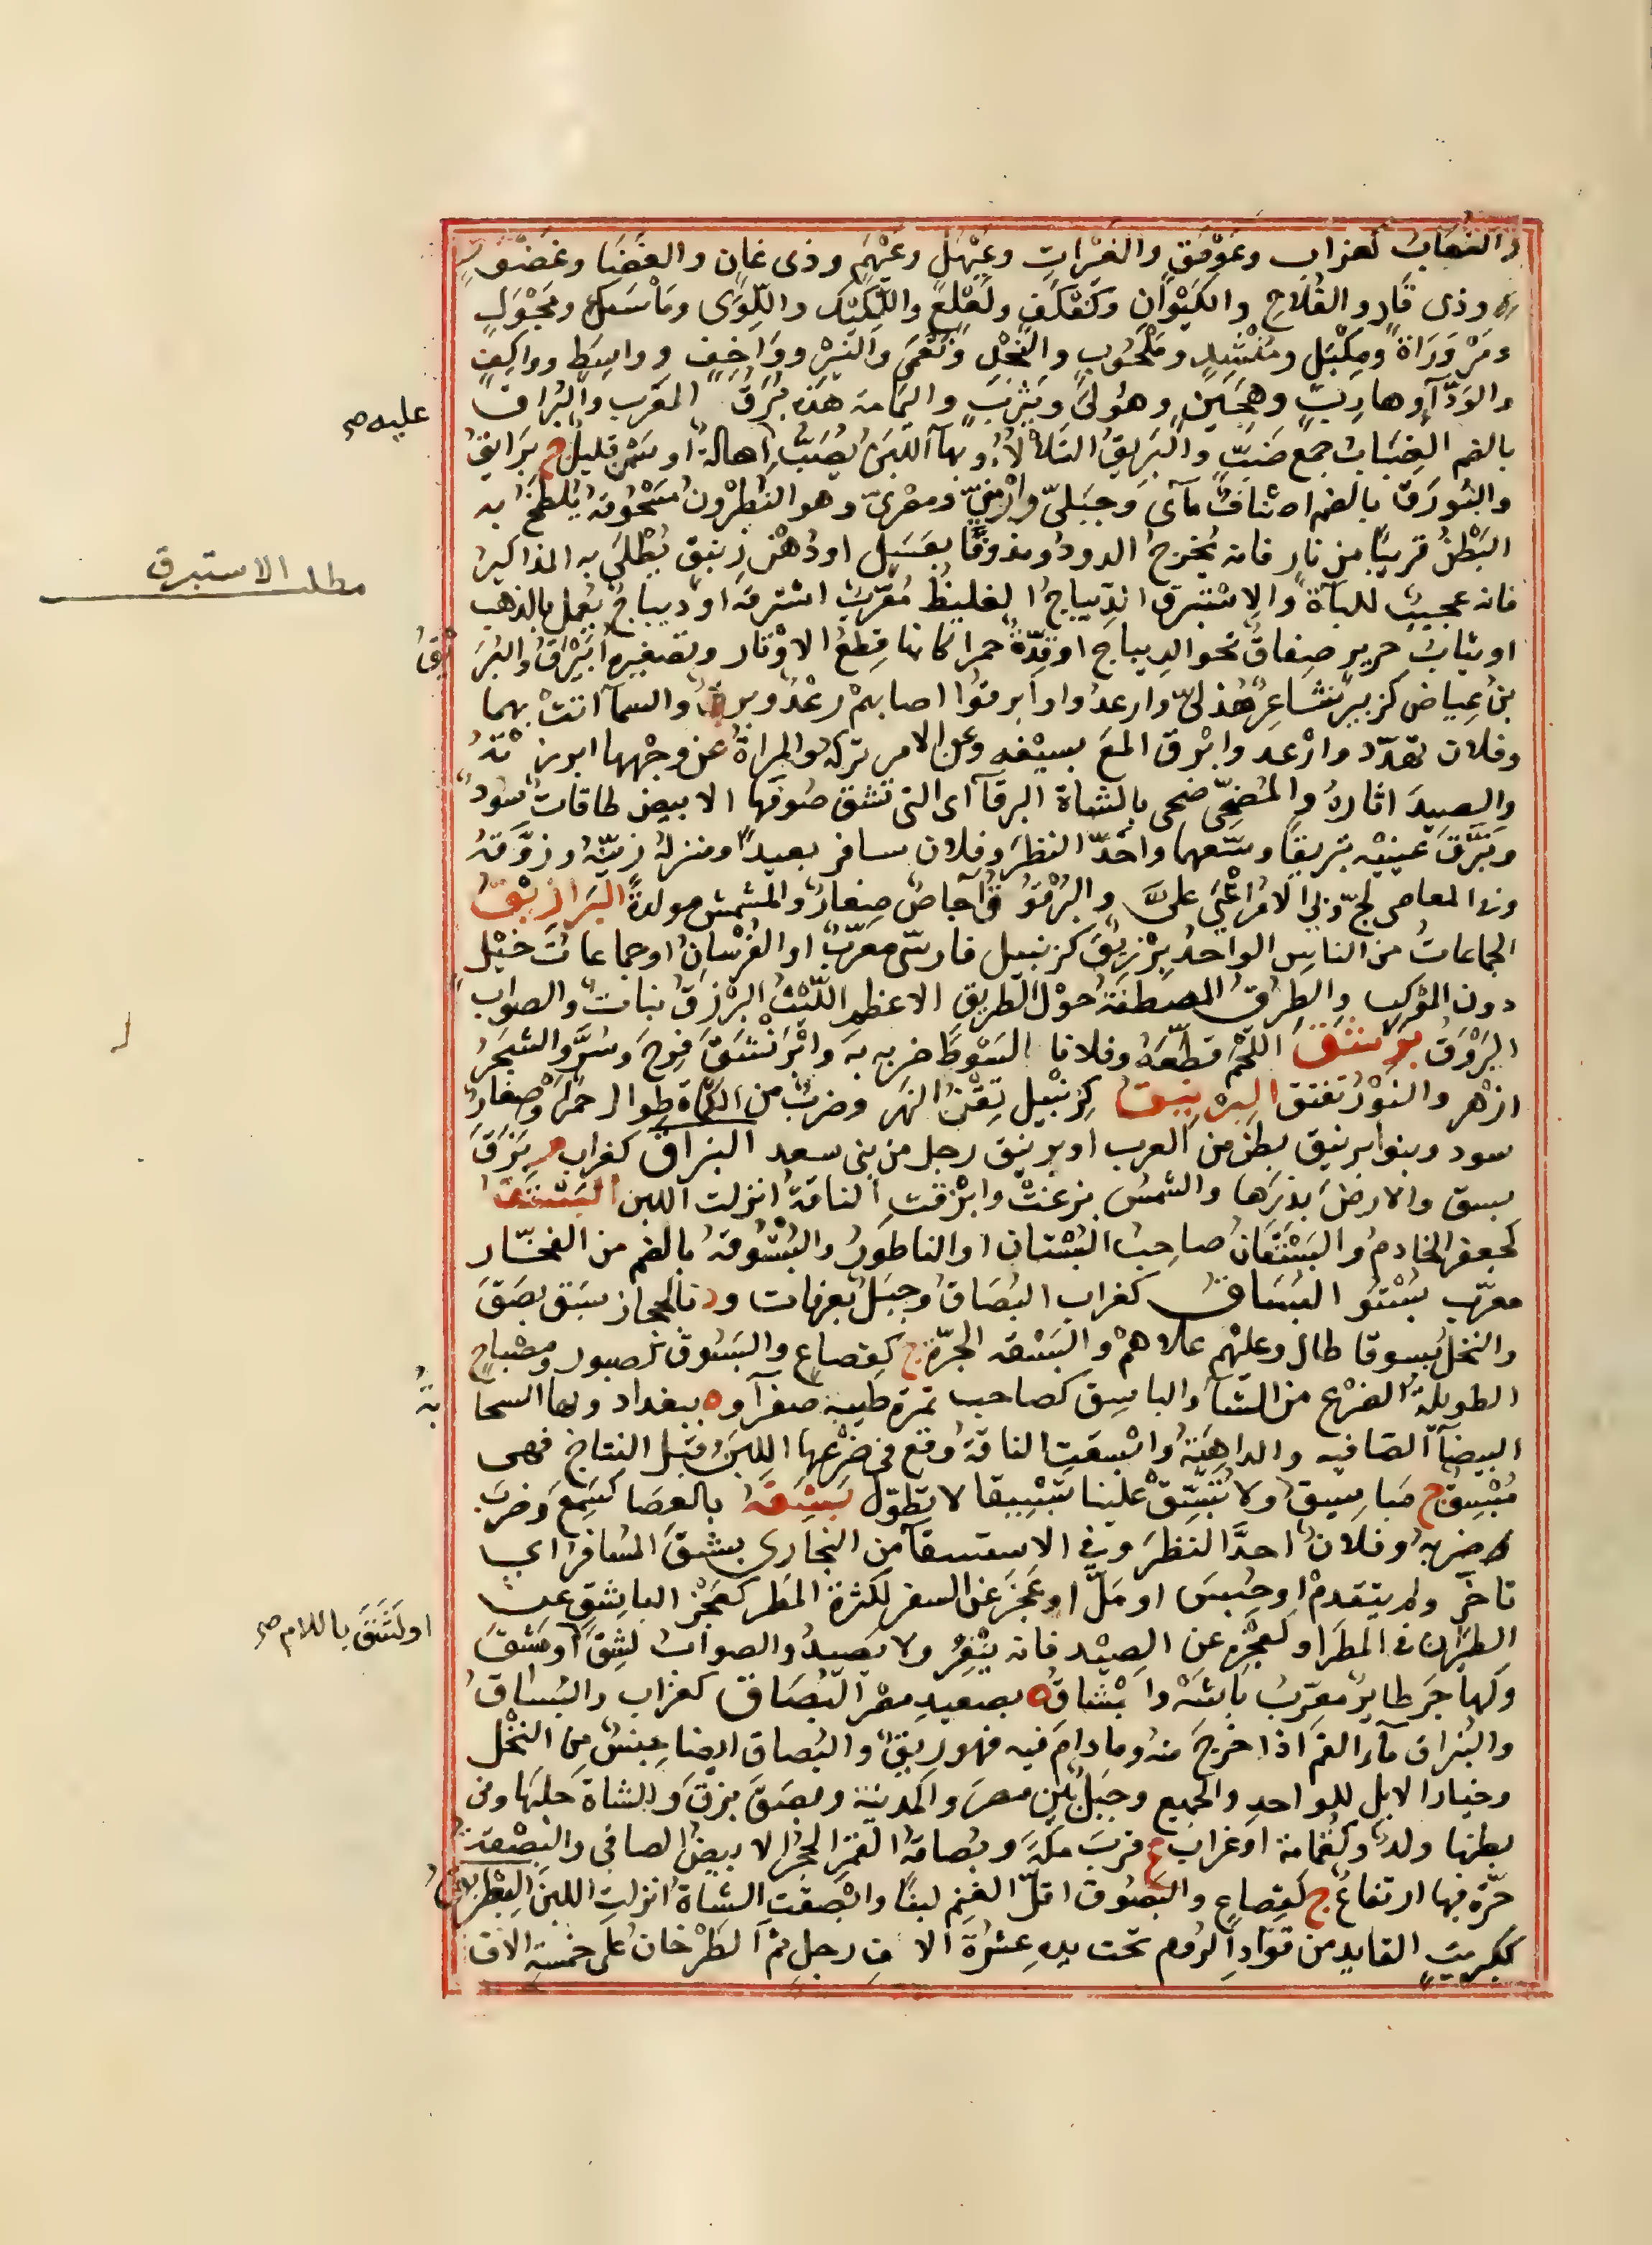 والنعاب كغراب وعوهق والغرات وعيهل وعيهم وذى غان والغضا وغضور
وذى قار والقلاخ والكبوان وكفلف ولعلع واللكيك واللوى ومأسل ومجول
ومروراة ومكتل ومنشد وملحوب والنجل ونعمى والنير وواخف وواسط وواكف
والودآ وهارب وهجين وهولى ويثرب واليمامة هذه برق المغرب والبراق
بالضم الضباب جمع ضب والبريق التلألاؤ وبهآ اللبن يصب اهالة او سمن قليل ج برائق
والبورق بالضم اصناف مآى وجبلى وارمنى ومصرى وهو النطرون مسحوقه يلطخ به
البطن قريبا من نار فانه يخرج الدود ومدوفا بعسل او دهن زنبق يطلى به المذاكير
فانه عجيب للبآة والاستبرق الديباج الغليظ معرب استروه او ديباج يعمل بالذهب
او ثياب حرير صفاق نحو الديباج او قدة حمرا كانها قطع الاوتار وتصغيره ابيرق والبريق
بن عياض كزبير شاعر هذلى وارعدوا وابرقوا اصابهم رعد وبرق والسمآ اتت بهما
وفلان تهدد وارعد وابرق المع بسيفه وعن الامر تركه والمراة عن وجهها ابرزته
والصيد اثاره والمضحى ضحى بالشاة البرقآ اى التى تشق صوفها الابيض طاقات سود
وبرق عينيه تبريقا وسعهما واحد النظر وفلان سافر بعيدا ومنزله زينه وزوقه
وفى المعاصى لج وبى الامر اعيى على والبرقوق آجاص صغار والمشمش مولدة البرازيق
الجماعات من الناس الواحد برزيق كزنبيل فارسى معرب او الفرسان او جماعات خيل
دون الموكب والطرق المصطفة حول الطريق الاعظم الليث البرزق نبات والصواب
البروق برشق اللحم قطعه وفلانا السوط ضربه به وابرنشق فرح وسر والشجر
ازهر والنور تفتق البرنيق كزنبيل تقن النهر وضرب من الكمآة طوال حمر وصغار
سود وبنوا برنيق بطن من العرب او برنيق رجل من بنى سعد البزاق كغراب م بزق
بسق والارض بذرها والشمس بزغت وابزقت الناقة انزلت اللبن البستق
كجعفر الخادم والبستقان صاحب البستان او الناطور والبستوقة بالضم من الفخار
معرب بستو البساق كغراب البصاق وجبل بعرفات ود بالحجاز بسق بصق
والنخل بسوقا طال وعليهم علاهم والبسقة الحرة ج كقصاع والبسوق كصبور ومصباح
الطويلة الضرع من الشآ والباسق كصاحب تمرة طيبة صفرآ وة ببغداد وبها السحابة
البيضآ الصافيه والداهية وابسقت الناقة وقع فى ضرعها اللبن قبل النتاج فهى
مبسق ج مباسيق ولا تبسق علينا تبسيقا لا تطول بشقه بالعصا كسمع وضرب
ضربه وفلان احد النظر وفى الاستسقآ من البخارى بشق المسافر اى
تاخر ولم يتقدم او حبس او مل او عجز عن السفر لكثرة المطر كعجز الباشق عن
الطيران فى المطر او لعجزه عن الصيد فانه ينفر ولا يصيد والصواب لشق او مشق
وكهاجر طاير معرب باشه وابشاق ة بصعيد مصر البصاق كغراب والبساق
والبزاق مآء الفم اذا خرج منه وما دام فيه فهو ريق والبصاق ايضا جنس من النخل
وخيار الابل للواحد والجميع وجبل بين مصر والمدينة وبصق بزق والشاة حلبها وفى
بطنها ولد وكثمامة او غراب ع قرب مكة وبصاقة القمر الحجر الابيض الصافى والبصقة
حرة فيها ارتفاع ج كقصاع والبصوق اقل الغنم لبنا وابصقت الشاة انزلت اللبن البطريق
ككبريت القايد من قواد الروم تحت يده عشرة الاف رجل ثم الطرخان على خمسة الاف
عليه صح
مطلب الاستبرق
او لشق باللام صح